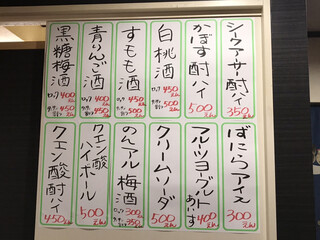 シークアーサー酎ハイ
350えん
かぼす酎ハイ
500えん
白桃酒
ロック450えん
500えん
すもも酒
ロック400えん
450えん
青りんご酒
ロック400えん
450えん
黒糖梅酒
ロック400えん
450えん
ばにらアイス
300えん
フルーツヨーグルトあいす
400えん
クリームソーダ
500えん
のんアル梅酒
ロック300えん
350えん
クエン酸ハイボール
500えん
クエン酸酎ハイ
450えん